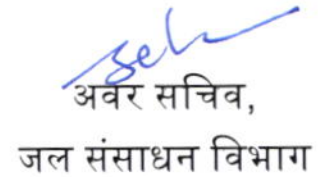 अवर सचिव,
जल संसाधन विभाग